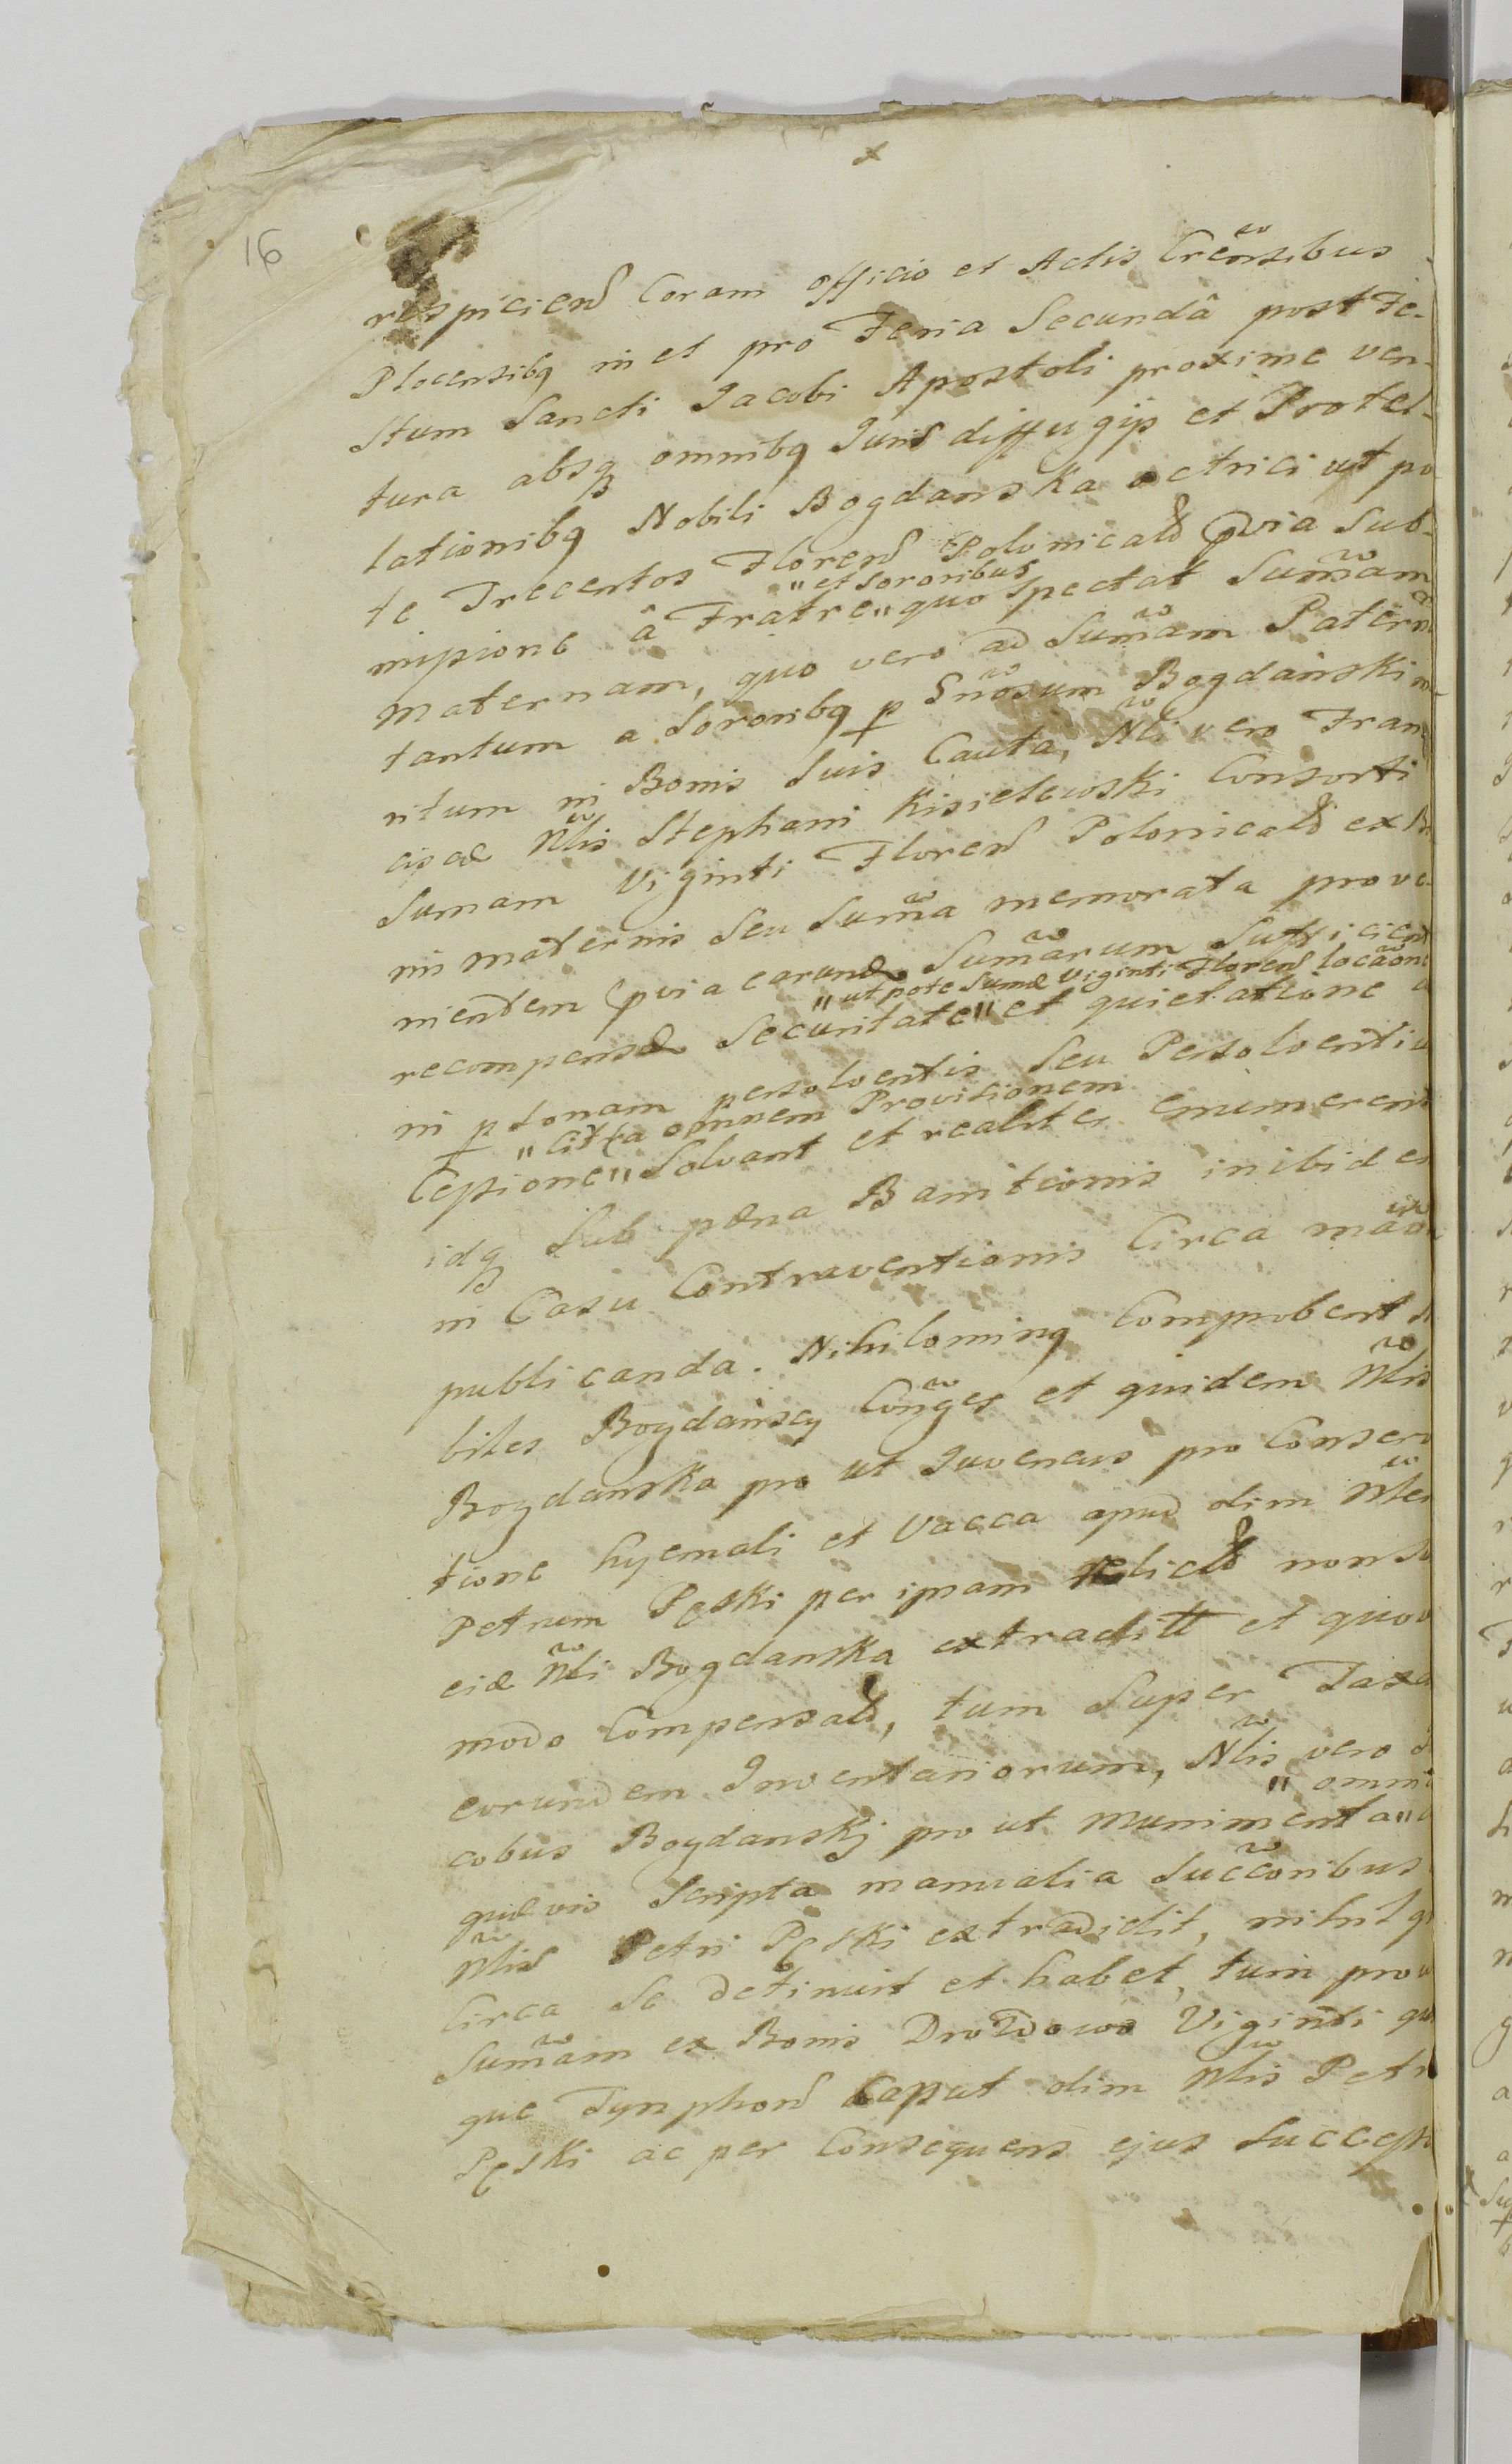 x
16
respiciens Coram officio et Actis Crensibus
Plocensibq in et pro Feria Secundâ post Fe-
stum Sancti Jacobi Apostoli proxime ven-
tura absq omnibq Juris diffugijs et Protel-
lationibq Nobili Bogdanska actrici ut po
te Trecentos Floren Polonical prvia Sub-
"et Sororibus
missione â Fratre" quo spectat Sumam
maternam, quo vero ad Sumam Patern
tantum a Sororibq p Gnosum Bogdański
ritum in Bonis Suis Cauta, Nli vero Fran
ciscæ Nlis Stephani Kisielewski Consorti
Sumam Viginti Floren Polonical ex
nis maternis Seu Suma memorata prove-
nientem prvia earund Sumarum Sufficient
"utpote Sumæ Viginti Floren locaone
recompensæ Securitate" et quietatione
in p sonam persolventis Seu Persolventiu
"citra omnem Provisionem
Ceptione" Solvant et realiter enumerent
idq Sub pæna Banitionis inibidem
in Casu Contraventionis Circa
publicanda. Nihilominq Comprobent
biles Bogdańscy Conges et quidem Nlis
Bogdanska pro ut Juvencus pro Conserv
tione hyemali et Vacca apud olim Nlem
Petrum Pęski per ipsam relict non
eid Nli Bogdanska extradit et quov
modo Compensat, tum Super Taxa
eorundem Inventariorum, Nlis vero
"omni
cobus Bogdanskj pro ut munimenta"
quævis Scripta manualia Succoribus
Nlis Petri Pęski extradidit, nihil q
Circa Se detinuit et habet, tum pro
Sumam ex Bonis Drozdowo Viginti qu
que Tynphon Caput olim Nlis Petri
Pęski ac per Consequens ejus Success